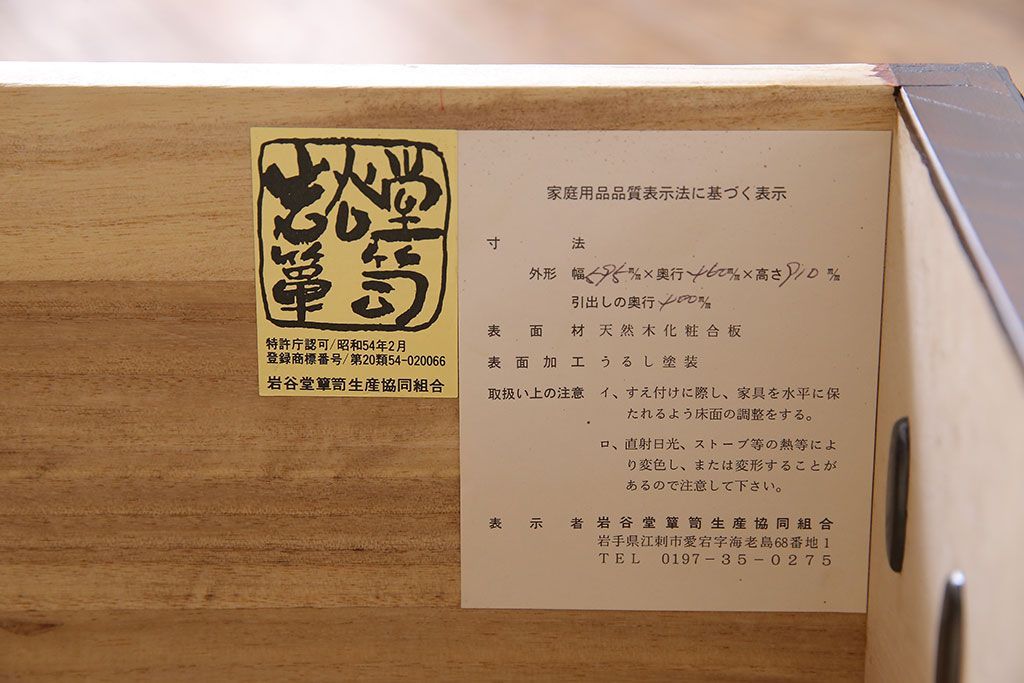 岩谷堂
箪笥
特許庁認可/昭和54年2月
登録商標番号/第20類54-020066
岩谷堂簞笥生産協同組合
家庭用品品質表示法に基づく表示
寸法
外形 幅595㎜×奥行460㎜×高さ910㎜
引出しの奥行400㎜
表面材 天然木化粧合板
表面加工 うるし塗装
取扱い上の注意 イ、すえ付けに際し、家具を水平に保
たれるよう床面の調整をする。
ロ、直射日光、ストーブ等の熱等によ
り変色し、または変形することが
あるので注意して下さい。
表示者 岩谷堂簞笥生産協同組合
岩手県江刺市愛宕字海老島68番地1
TEL 0197-35-0275